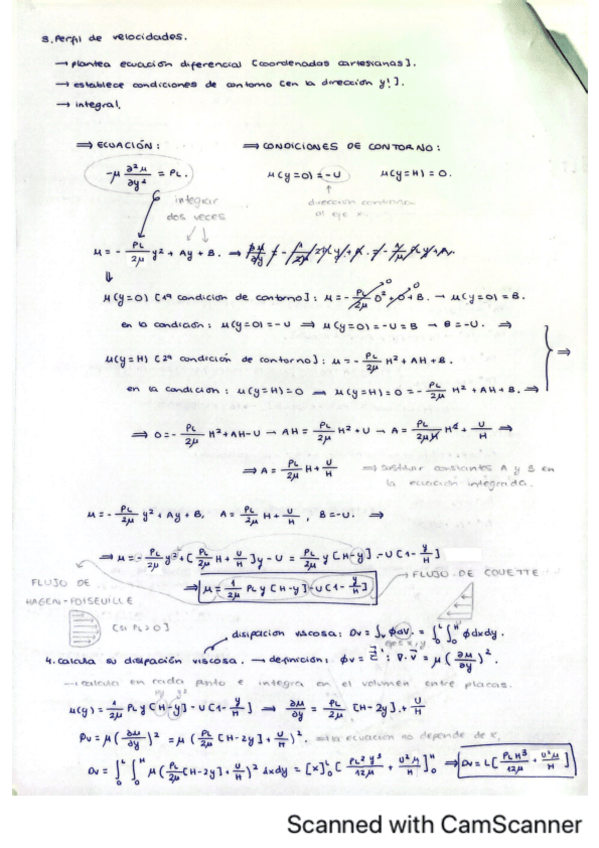 3. Perfil de velocidades.
→ plantea ecuación diferencial [coordenadas cartesianas].
→ establece condiciones de contorno [en la dirección y!].
→ integral.
⇒ ECUACIÓN: ⇒ CONDICIONES DE CONTORNO:
-μ ∂²u/∂y² = PL. u(y=0) = -U u(y=H) = 0.
integrar dirección contraria
dos veces al eje x.
u = - PL/2μ y² + Ay + B. ⇒
u(y=0) [1ª condición de contorno]: u = - PL/2μ 0² + 0 + B. → u(y=0) = B.
en la condición: u(y=0) = -U ⇒ u(y=0) = -U = B → B = -U. ⇒
u(y=H) [2ª condición de contorno]: u = - PL/2μ H² + AH + B. ⇒
en la condición: u(y=H) = 0 ⇒ u(y=H) = 0 = - PL/2μ H² + AH + B. ⇒
⇒ 0 = - PL/2μ H² + AH - U → AH = PL/2μ H² + U → A = PL/2μH H² + U/H ⇒
⇒ A = PL/2μ H + U/H ⇒ sustituir constantes A y B en
la ecuación integrada.
u = - PL/2μ y² + Ay + B, A = PL/2μ H + U/H, B = -U. ⇒
⇒ u = - PL/2μ y² + [PL/2μ H + U/H]y - U = PL/2μ y [H-y] - U[1 - y/H]
⇒ u = 1/2μ PL y [H-y] - U[1 - y/H] → FLUJO DE COUETTE
FLUJO DE
HAGEN-POISEUILLE
[si PL>0]
disipación viscosa: Dv = ∫v ϕdV = ∫₀ᴸ∫₀ᴴ ϕdxdy.
4. calcula su disipación viscosa. → definición: ϕv = τ' : ∇·v = μ(∂u/∂y)².
→ calcula en cada punto e integra en el volumen entre placas.
u(y) = 1/2μ PL y [H-y] - U[1 - y/H] ⇒ ∂u/∂y = PL/2μ [H-2y] + U/H
ϕv = μ(∂u/∂y)² = μ(PL/2μ [H-2y] + U/H)². ⇒ la ecuación no depende de x,
Dv = ∫₀ᴸ∫₀ᴴ μ(PL/2μ [H-2y] + U/H)² dxdy = [x]₀ᴸ [PL² y³/12μ + U²μ/H]₀ᴴ ⇒ Dv = L[PL H³/12μ + U²μ/H]
Scanned with CamScanner